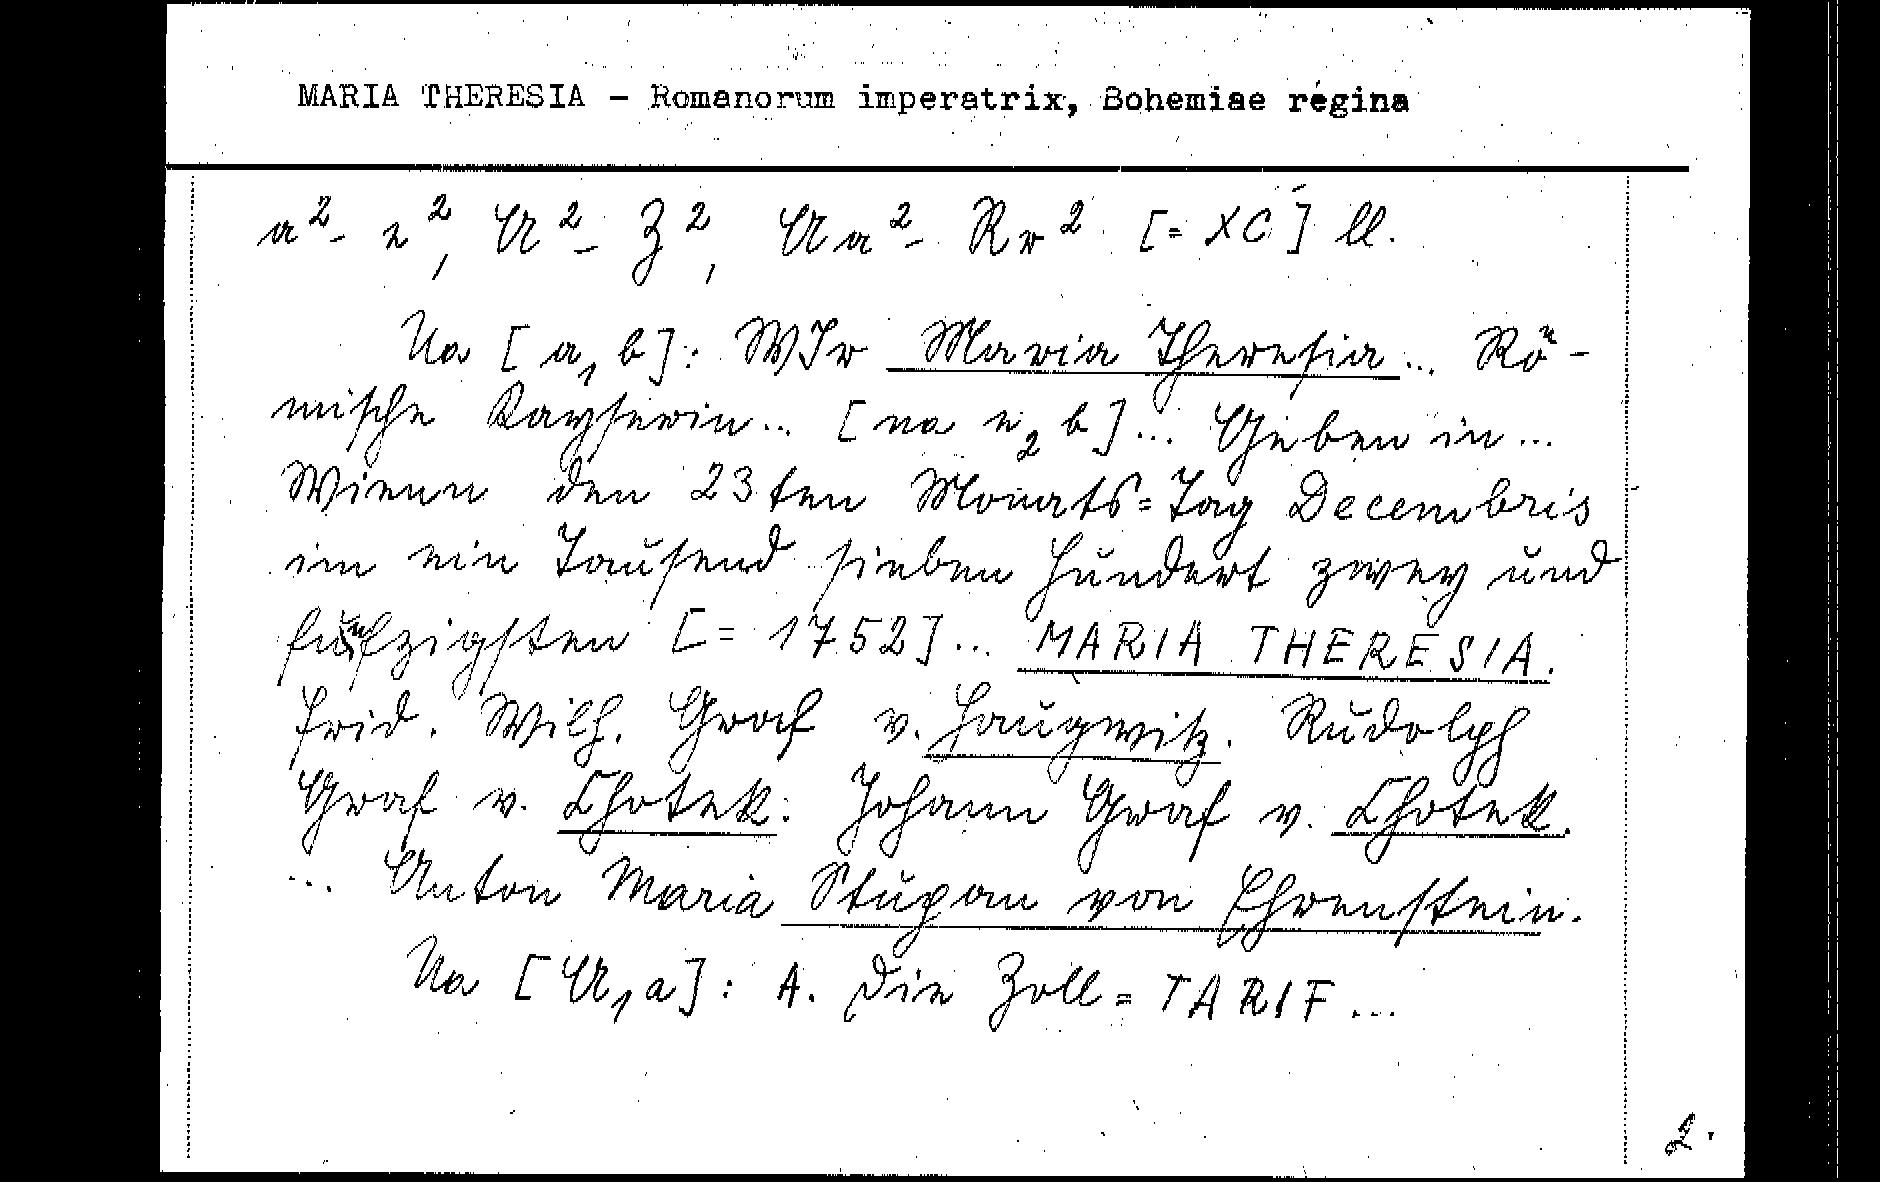 MARIA THERESIA - Romanorum imperatrix, Bohemiae regina
a²- e², A²- Z², Aa²- Rr² [= XC] ll.
Na [a₁ b]: WIr Maria Theresia... Rö-
mische Kayserin... [na e₂ b]... Geben in...
Wienn den 23ten Monats=Tag Decembris
im ein Tausend sieben Hundert zwey und
fünfzigsten [= 1752]... MARIA THERESIA.
Frid. Wilh. Graf v. Haugwitz. Rudolph
Graf v. Chotek. Johann Graf v. Chotek.
... Anton Maria Stupan von Ehrenstein.
Na [A₁a]: A. Die Zoll=TARIF...
2.